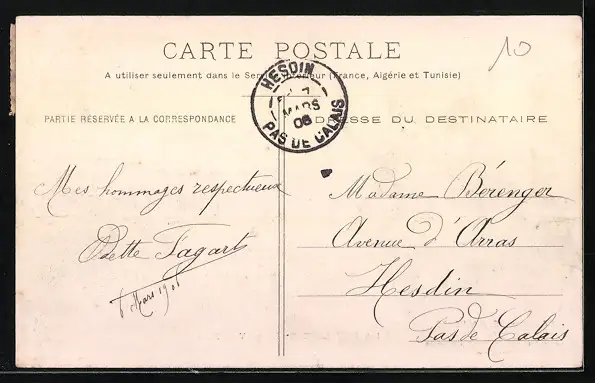 CARTE POSTALE
10
A utiliser seulement dans le (France, Algérie et Tunisie)
HESDIN
7
MARS
06
PAS DE CALAIS
PARTIE RÉSERVÉE A LA CORRESPONDANCE
DU DESTINATAIRE
Mes hommages respectueux
Odette Fagart
6 Mars
Madame Bérenger
Avenue d'Arras
Hesdin
Pas de Calais